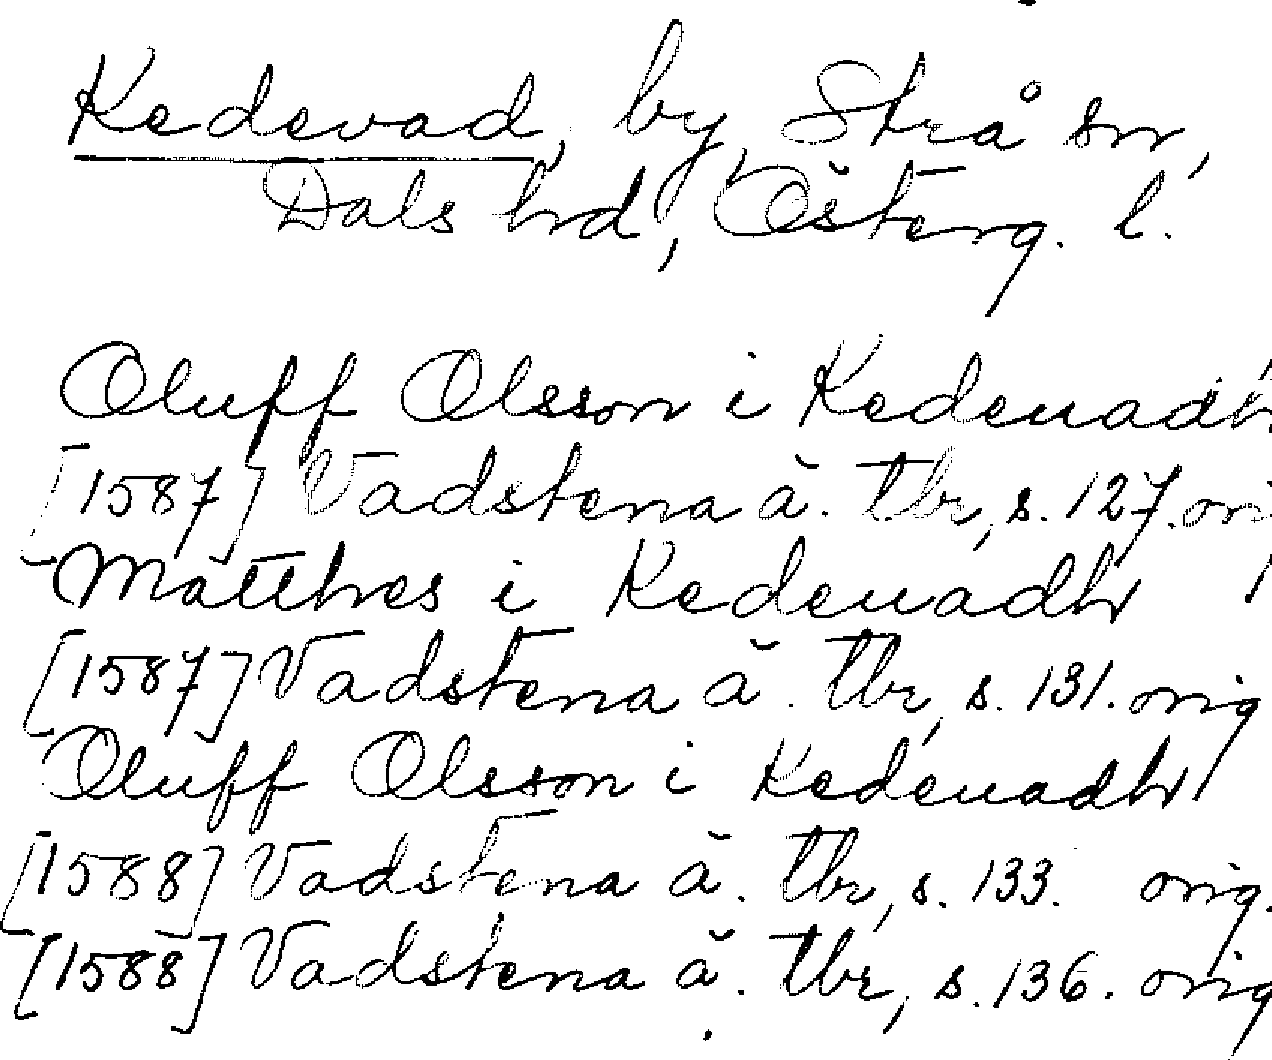 Kedevad, by, Strå sn,
Dals hd, Österg. l.
Oluff Olsson i Kedeuadh
[1587] Vadstena ä. tbr, s. 127. ori
Matthes i Kedeuadh
[1587] Vadstena ä. tbr, s. 131. orig
Oluff Olsson i Kedeuadh
[1588] Vadstena ä. tbr, s. 133. orig.
[1588] Vadstena ä. tbr, s. 136. orig